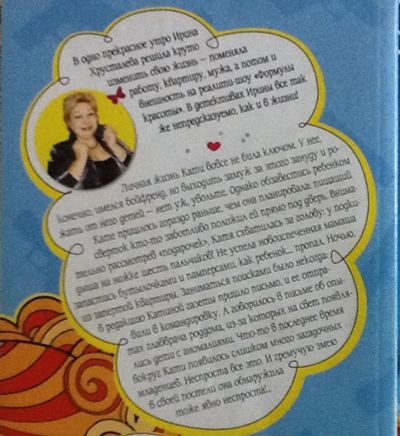 В одно прекрасное утро Ирина
Хрусталева решила круто
изменить свою жизнь – поменяла
работу, квартиру, мужа, а потом и
внешность на реалити-шоу «Формулы
красоты». В детективах Ирины все так
же непредсказуемо, как и в жизни!
Личная жизнь Кати вовсе не била ключом. У нее,
конечно, имелся бойфренд, но выходить замуж за этого зануду и ро-
жать от него детей – нет уж, увольте. Однако обзавестись ребенком
Кате пришлось гораздо раньше, чем она планировала: пищащий
сверток кто-то заботливо положил ей прямо под дверь. Внима-
тельно рассмотрев «подарочек», Катя схватилась за голову: у подки-
дыша на ножке шесть пальчиков! Не успела новоиспеченная мамаша
запастись бутылочками и памперсами, как ребенок... пропал. Ночью,
из запертой квартиры. Заниматься поисками было некогда:
в редакцию Катиной газеты пришло письмо, и ее отпра-
вили в командировку. А говорилось в письме об опы-
тах главврача роддома, из-за которых на свет появля-
лись дети с аномалиями. Что-то в последнее время
вокруг Кати появилось слишком много загадочных
младенцев. Неспроста все это. И гремучую змею
в своей постели она обнаружила
тоже явно неспроста!..